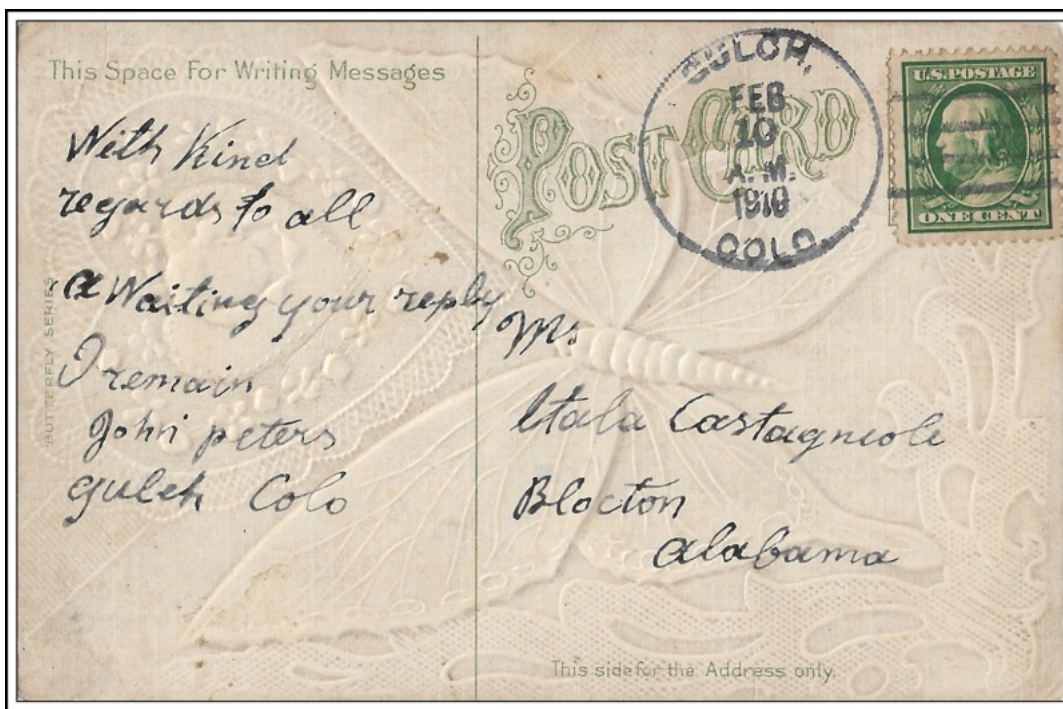 This Space For Writing Messages
With Kind
regards to all
a Waiting your reply
I remain
John peters
gulch Colo
BUTTERFLY SERIES
POST CARD
GULCH,
FEB
10
A.M.
1910
COLO.
U.S. POSTAGE
ONE CENT
Itala Castagneole
Blocton
alabama
This side for the Address only.